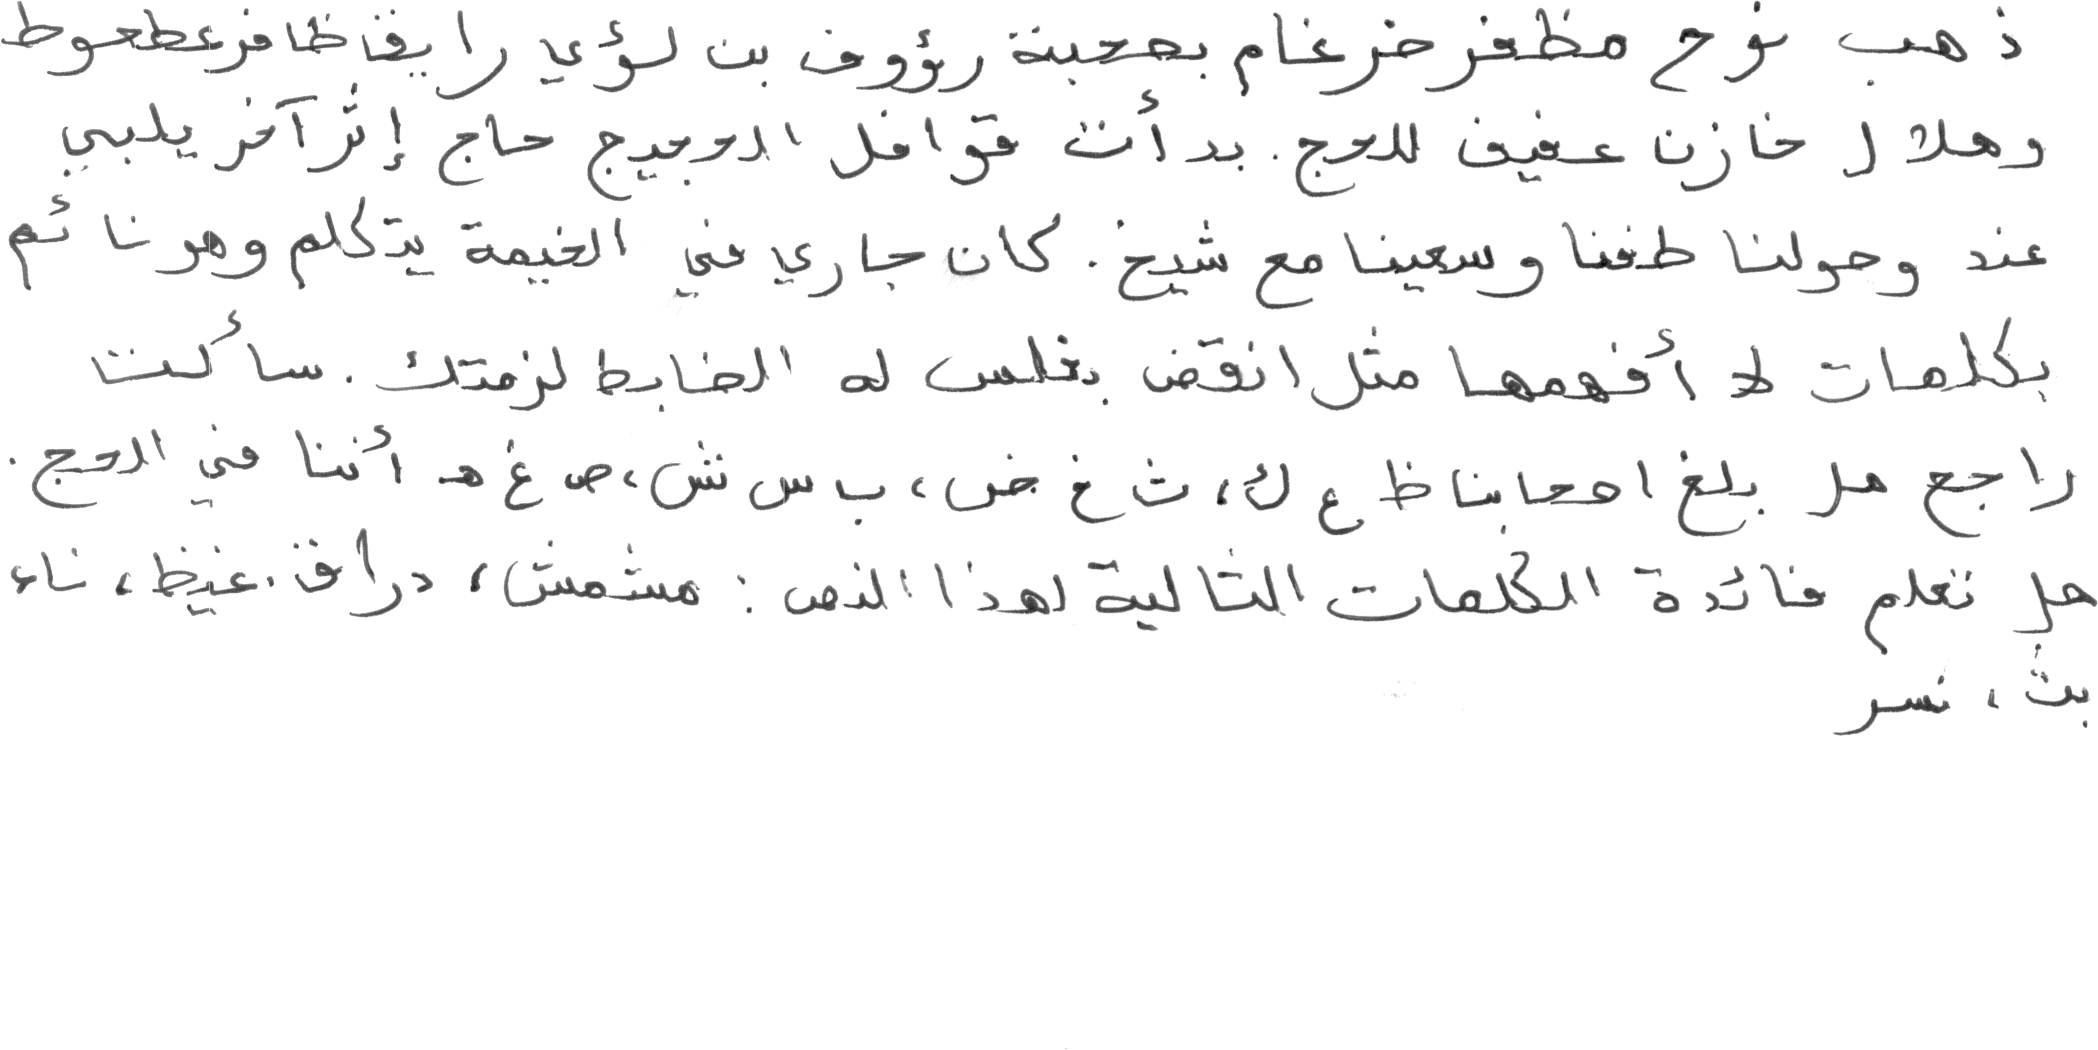 ذهب نوح مظفر ضرغام بصحبة رؤوف بن لؤي رايق ظافر عطعوط
وهلال خازن عفيف للحج. بدأت قوافل الحجيج حاج إثر آخر يلبي
عند وصولنا طفنا وسعينا مع شيخ. كان جاري في الخيمة يتكلم وهو نائم
بكلمات لا أفهمها مثل انقض بغلس له الضابط لزمتك. سألت
راجح هل بلغ احجابنا ظ ع ك، ث خ ض، ب س ش، ص غ هـ أننا في الحج.
هل تعلم فائدة الكلمات التالية لهذا النص: مشمش، دراق. غيظ، ناء
بث، نسر